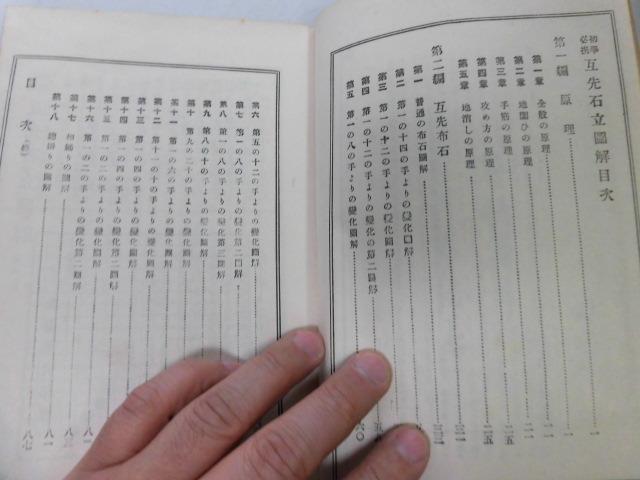 初學必携 互先石立圖解目次
第一編 原理 一
第一章 全般の原理 一
第二章 地圍ひの原理 一一
第三章 手筋の原理 二五
第四章 攻め方の原理 二五
第五章 地消しの原理 三一
第二編 互先布石 三三
第一 普通の布石圖解
第二 第一の十四の手よりの變化圖解
第三 第一の十二の手よりの變化圖解
第四 第一の十二の手よりの變化の第二圖解
第五 第一の八の手よりの變化圖解 六〇
第六 第五の十二の手よりの變化圖解
第七 第一の八の手よりの變化第二圖解
第八 第一の八の手よりの變化第三圖解
第九 第八の十の手よりの變化圖解
第十 第九の二十の手よりの變化圖解
第十一 第一の六の手よりの變化圖解
第十二 第十一の十の手よりの變化圖解
第十三 第一の四の手よりの變化圖解
第十四 第一の四の手よりの變化第二圖解
第十五 第一の二の手よりの變化圖解
第十六 第一の二の手よりの變化第二圖解 八一
第十七 相締りの圖解
第十八 總掛りの圖解 八七
目次